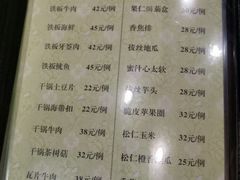 铁板牛肉 42元/例
铁板海鲜 45元/例
铁板牙签肉 42元/例
铁板鱿鱼 45元/例
干锅土豆片 22元/例
干锅海带扣 22元/例
干锅牛肉 38元/例
干锅茶树菇 32元/例
瓦片牛肉 38元/例
果仁 盒 24元/例
香蕉排 28元/例
拔丝地瓜 24元/例
蜜汁心太软 28元/例
拔丝芋头 28元/例
脆皮苹果圈 32元/例
松仁玉米 32元/例
松仁橙香 瓜 25元/例